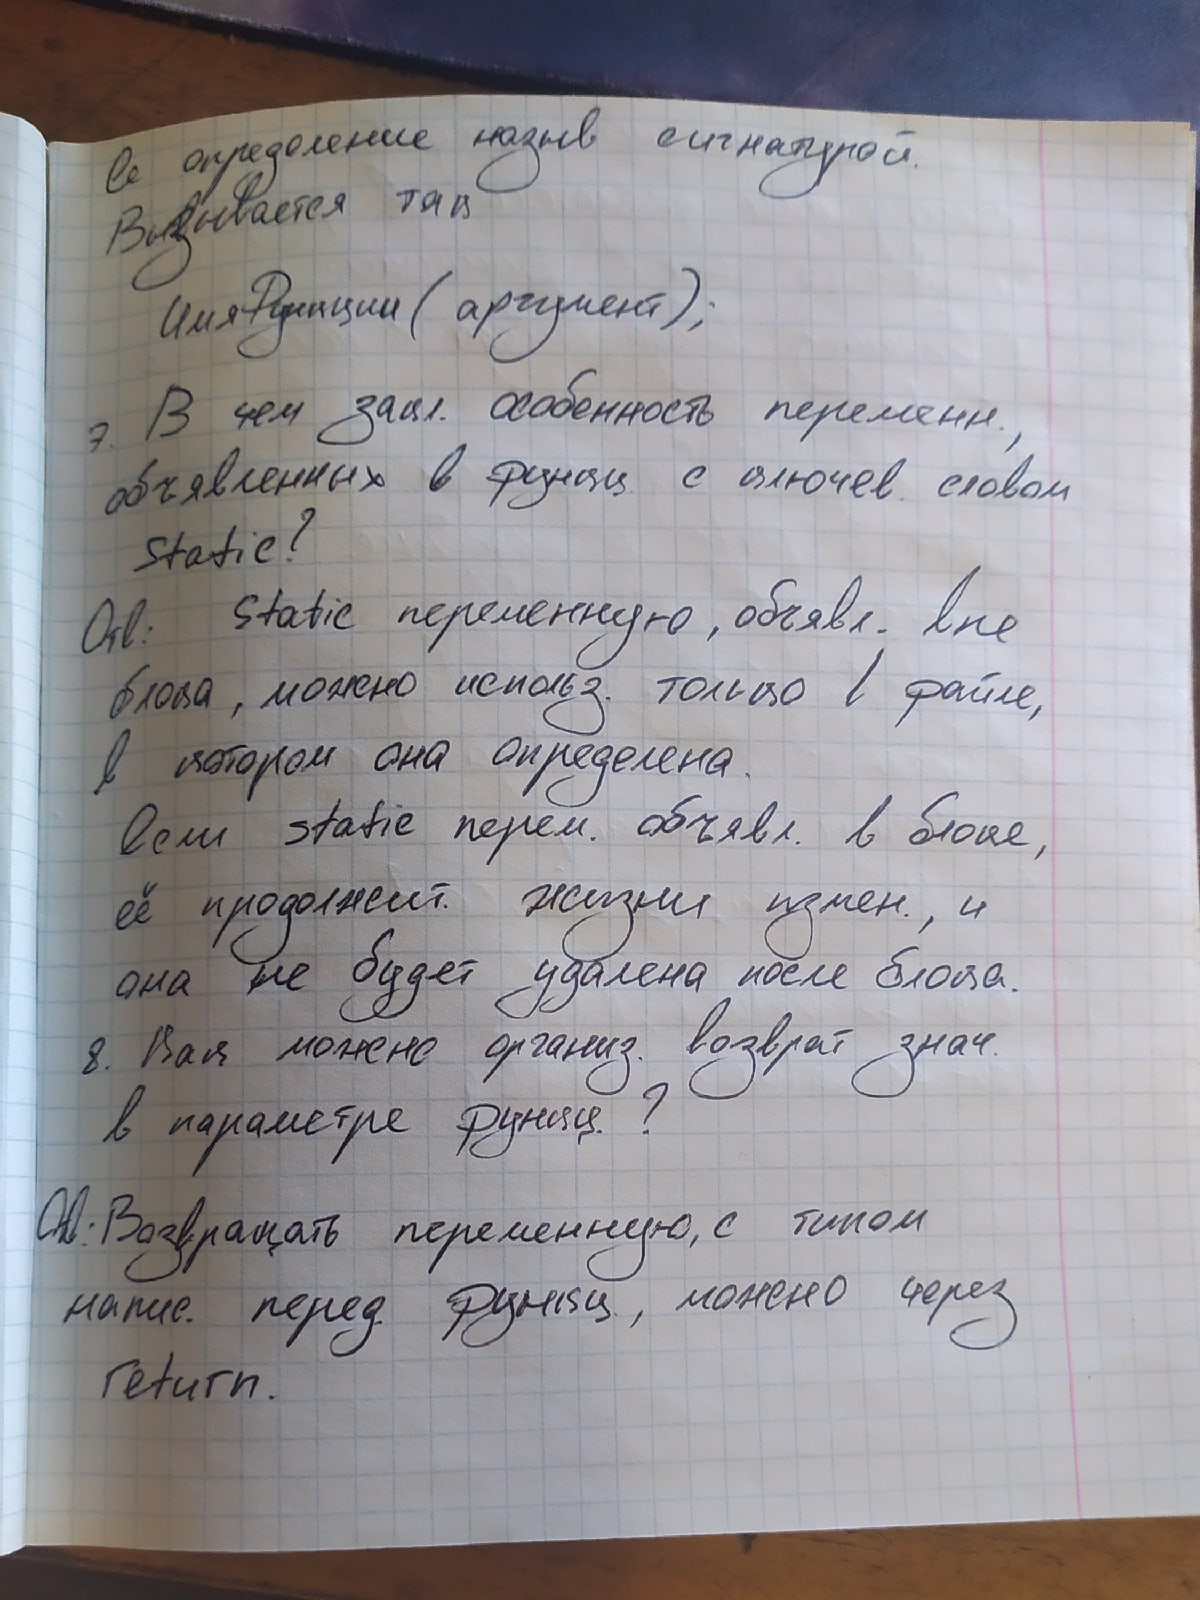 Её определение назыв сигнатурой.
Вызывается так
ИмяФункции (аргумент);
7. В чем закл. особенность переменн.,
объявленных в функц. с ключев. словом
static?
Отв: Static переменную, объявл. вне
блока, можно использ. только в файле,
в котором она определена.
Если static перем. объявл. в блоке,
её продолжит. жизни измен., и
она не будет удалена после блока.
8. Как можно организ. возврат знач.
в параметре функц.?
Отв: Возвращать переменную, с типом
напис. перед функц., можно через
return.